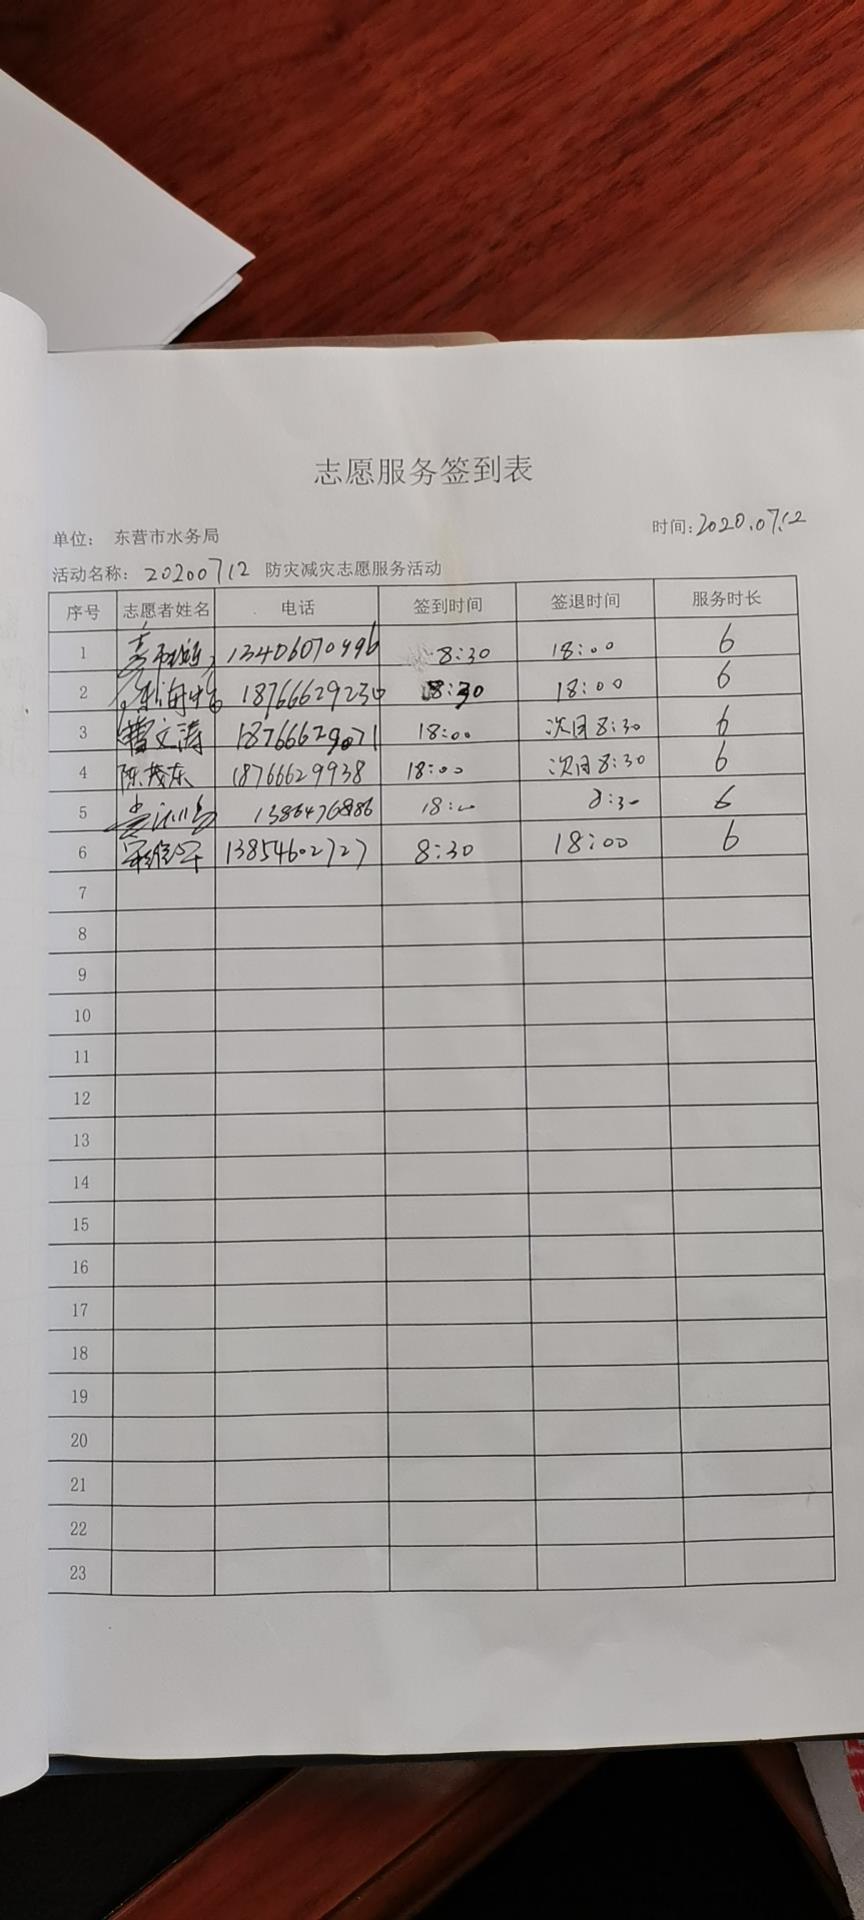 志愿服务签到表
单位： 东营市水务局 时间:2020.07.12
活动名称：20200712 防灾减灾志愿服务活动
序号 志愿者姓名 电话 签到时间 签退时间 服务时长
1 13406070496 8:30 18:00 6
2 18766629230 8:30 18:00 6
3 曹文涛 18766629071 18:00 次日8:30 6
4 陈茂东 18766629938 18:00 次日8:30 6
5 1386476886 18:00 8:30 6
6 13854602727 8:30 18:00 6
7
8
9
10
11
12
13
14
15
16
17
18
19
20
21
22
23